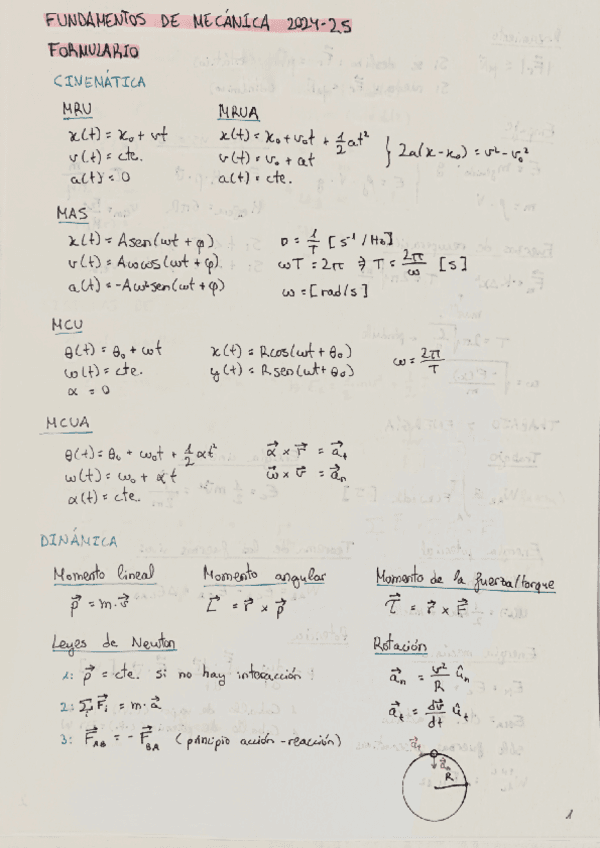 FUNDAMENTOS DE MECÁNICA 2024-25
FORMULARIO
CINEMÁTICA
MRU
x(t) = x₀ + vt
v(t) = cte.
a(t) = 0
MRUA
x(t) = x₀ + v₀t + 1/2 at²
v(t) = v₀ + at
a(t) = cte.
} 2a(x - x₀) = v² - v₀²
MAS
x(t) = Asen(ωt + φ)
v(t) = Aωcos(ωt + φ)
a(t) = -Aω²sen(ωt + φ)
ν = 1/T [s⁻¹/Hz]
ωT = 2π ⇒ T = 2π/ω [s]
ω = [rad/s]
MCU
θ(t) = θ₀ + ωt
ω(t) = cte.
α = 0
x(t) = Rcos(ωt + θ₀)
y(t) = Rsen(ωt + θ₀)
ω = 2π/T
MCUA
θ(t) = θ₀ + ω₀t + 1/2 αt²
ω(t) = ω₀ + αt
α(t) = cte.
α⃗ x r⃗ = a⃗t
ω⃗ x v⃗ = a⃗n
DINÁMICA
Momento lineal
p⃗ = m·v⃗
Momento angular
L⃗ = r⃗ x p⃗
Momento de la fuerza/torque
τ⃗ = r⃗ x F⃗
Leyes de Newton
1: p⃗ = cte. si no hay interacción
2: Σi F⃗i = m·a⃗
3: F⃗AB = - F⃗BA (principio acción-reacción)
Rotación
a⃗n = v²/R ûn
a⃗t = dv⃗/dt ût
a⃗t
a⃗n
R
1